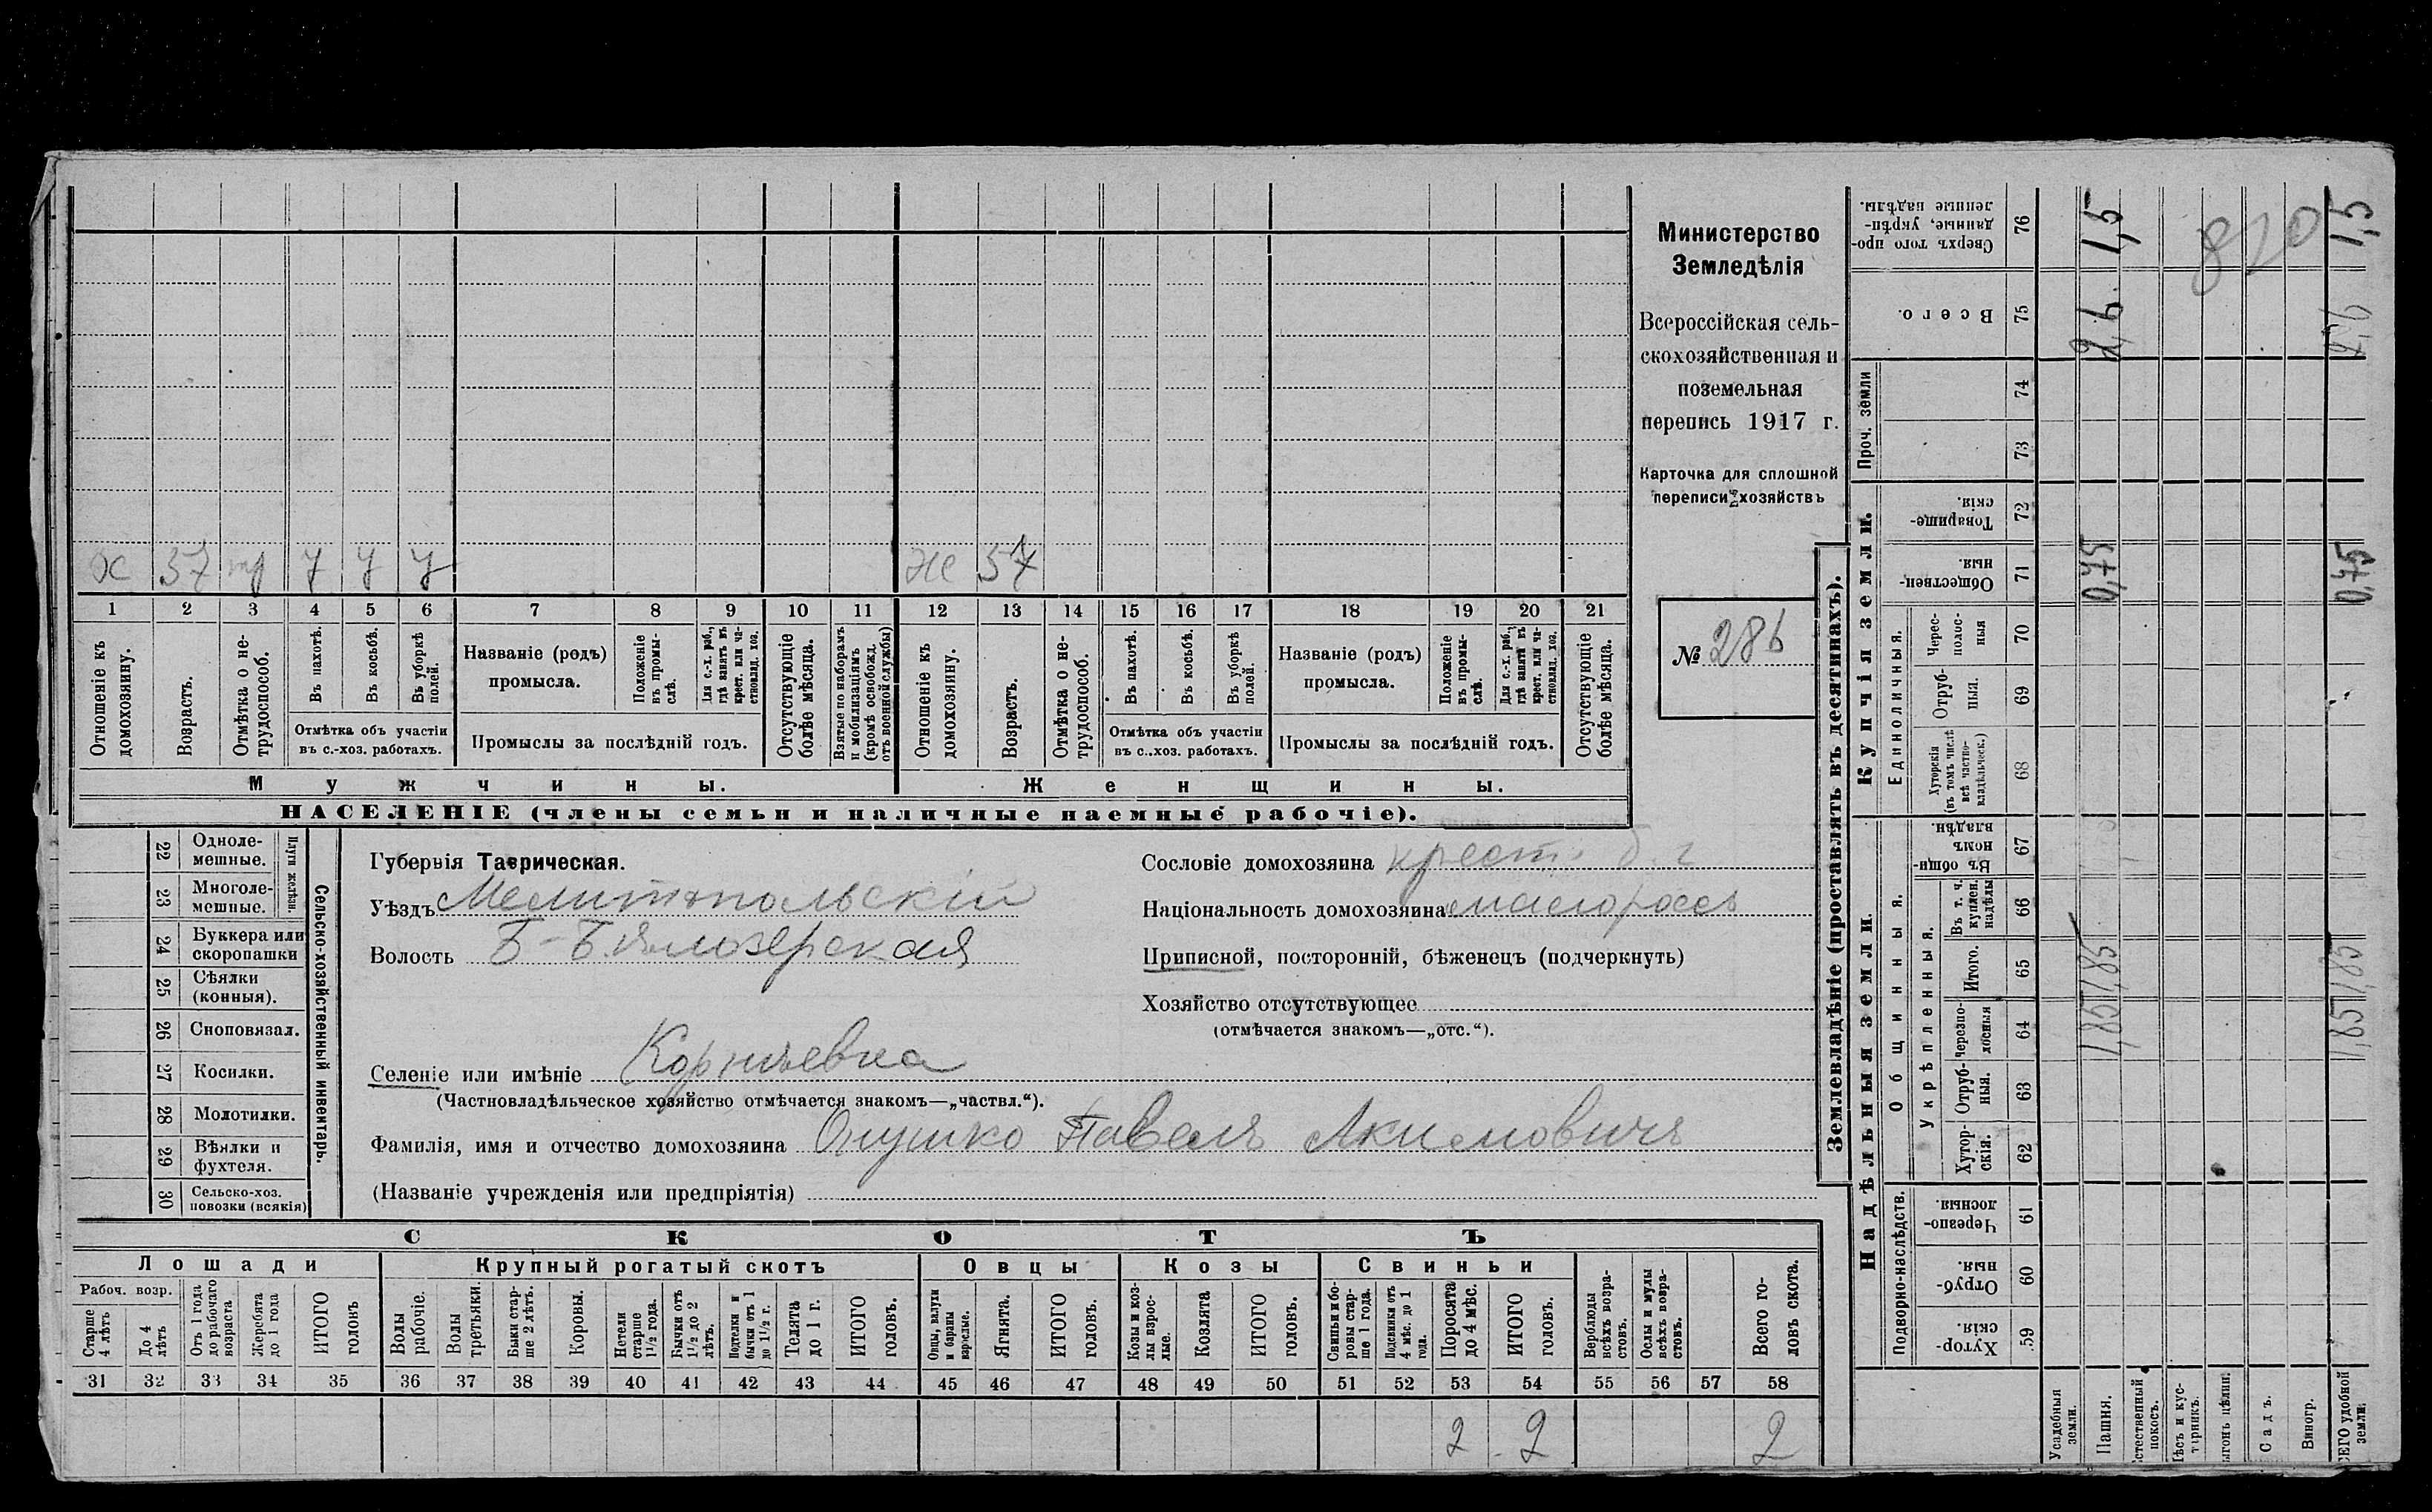 Министерство
Земледѣлія
Всероссійская сель-
скохозяйственная и
поземельная
перепись 1917 г.
Карточка для сплошной
переписи хозяйствъ
№ 286
х 37 тр у у у
же 57
1 2 3 4 5 6 7 8 9 10 11 12 13 14 15 16 17 18 19 20 21
Отношеніе къ домохозяину.
Возрастъ.
Отмѣтка о не-трудоспособ.
Въ пахотѣ.
Въ косьбѣ.
Въ уборкѣ полей.
Отмѣтка объ участіи
въ с.-хоз. работахъ.
Названіе (родъ)
промысла.
Положеніе въ промы-слѣ.
Для с.-х. раб., гдѣ занятъ въ крест. или ча-стновлад. хоз.
Промыслы за послѣдній годъ.
Отсутствующіе болѣе мѣсяца.
Взятые по наборамъ и мобилизаціямъ (кромѣ освобожд. отъ военной службы)
Отношеніе къ домохозяину.
Возрастъ.
Отмѣтка о не-трудоспособ.
Въ пахотѣ.
Въ косьбѣ.
Въ уборкѣ полей.
Отмѣтка объ участіи
въ с..хоз. работахъ.
Названіе (родъ)
промысла.
Положеніе въ промы-слѣ.
Для с.-х. раб., гдѣ занята въ крест. или ча-стновлад. хоз.
Промыслы за послѣдній годъ.
Отсутствующіе болѣе мѣсяца.
Мужчины.
Женщины.
НАСЕЛЕНІЕ (члены семьи и наличные наемные рабочіе).
22 Одноле-мешные.
23 Многоле-мешные.
Плуги желѣзн.
24 Буккера или скоропашки
25 Сѣялки (конныя).
26 Сноповязал.
27 Косилки.
28 Молотилки.
29 Вѣялки и фухтеля.
30 Сельско-хоз. повозки (всякія)
Сельско-хозяйственный инвентарь.
Губернія Таврическая.
Уѣздъ Мелитопольскій
Волость Б-Бѣлозерская
Сословіе домохозяина крест.
Національность домохозяина малороссъ
Приписной, посторонній, бѣженецъ (подчеркнуть)
Хозяйство отсутствующее
(отмѣчается знакомъ—„отс.“).
Селеніе или имѣніе Корнѣевка
(Частновладѣльческое хозяйство отмѣчается знакомъ—„частвл.“).
Фамилія, имя и отчество домохозяина Онушко Павелъ Акимовичъ
(Названіе учрежденія или предпріятія)
СКОТЪ
Лошади Крупный рогатый скотъ Овцы Козы Свиньи
Рабоч. возр.
Старше 4 лѣтъ
До 4 лѣтъ
Отъ 1 года до рабочаго возраста
Жеребята до 1 года
ИТОГО головъ
Волы рабочіе.
Волы третьяки.
Быки стар-ше 2 лѣтъ.
Коровы.
Нетели старше 1½ года.
Бычки отъ 1½ до 2 лѣтъ.
Подтелки и бычки отъ 1 до 1½ г.
Телята до 1 г.
ИТОГО головъ.
Овцы, валухи и бараны взрослые.
Ягнята.
ИТОГО головъ.
Козы и коз-лы взрос-лые.
Козлята
ИТОГО головъ.
Свиньи и бо-ровы стар-ше 1 года.
Подсвинки отъ 4 мѣс. до 1 года.
Поросята до 4 мѣс.
ИТОГО головъ.
Верблюды всѣхъ возра-стовъ.
Ослы и мулы всѣхъ возра-стовъ.
Всего го-ловъ скота.
31 32 33 34 35 36 37 38 39 40 41 42 43 44 45 46 47 48 49 50 51 52 53 54 55 56 57 58
2 2 2
Землевладѣніе (проставлять въ десятинахъ).
Надѣльныя земли.
Купчія земли.
Проч. земли
Подворно-наслѣдств.
Общинныя.
Укрѣпленныя.
Единоличныя.
Хутор-скія. 59
Отруб-ныя. 60
Черезпо-лосныя 61
Хутор-скія. 62
Отруб-ныя. 63
Черезпо-лосныя 64
Итого. 65
Въ т. ч. куплен. надѣлы 66
Въ общи-номъ владѣн. 67
Хуторскія (въ томъ числѣ всѣ частно-владѣльческ.) 68
Отруб-ныя. 69
Черес-полос-ныя 70
Обществен-ныя. 71
Товарище-скія. 72
73
74
Всего. 75
Сверхъ того про-данные, укрѣп-ленные надѣлы. 76
Усадебныя земли.
Пашня. 1,85 1,85 0,75 2,6 1,5
стественный покосъ.
ѣсъ и кус-тарникъ.
ыгонъ цѣлин.
Садъ.
Виногр.
СЕГО удобной земли. 1,85 1,85 0,75 2,6 1,5
820